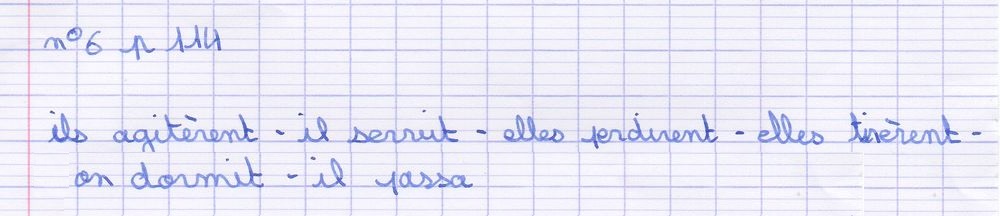 n°6 p 114
ils agitèrent - il serrut - elles perdirent - elles tirèrent -
on dormit - il passa